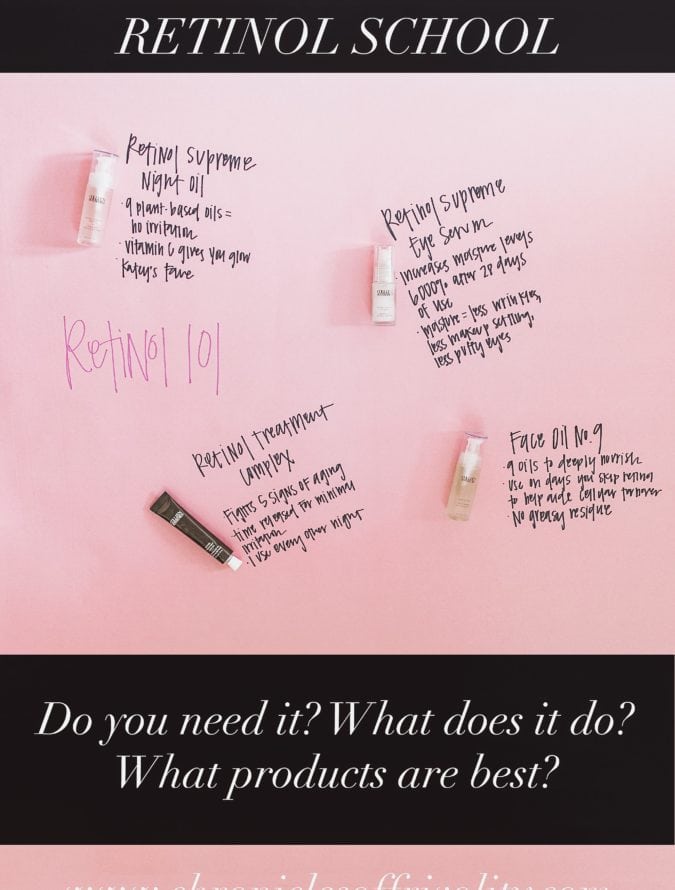 RETINOL SCHOOL
Retinol Supreme
Night Oil
· 9 plant-based oils =
no irritation
· Vitamin C gives you glow
· Katey's fave
Retinol Supreme
Eye Serum
· increases moisture levels
6000% after 28 days
of use
· moisture = less wrinkles,
less makeup settling,
less puffy eyes
Retinol 101
Retinol Treatment
Complex
Fights 5 signs of aging
time released for minimal
irritation
· I use every other night
Face Oil No. 9
· 9 oils to deeply nourish
· Use on days you skip retinol
to help aide cellular turnover
· No greasy residue
Do you need it? What does it do?
What products are best?